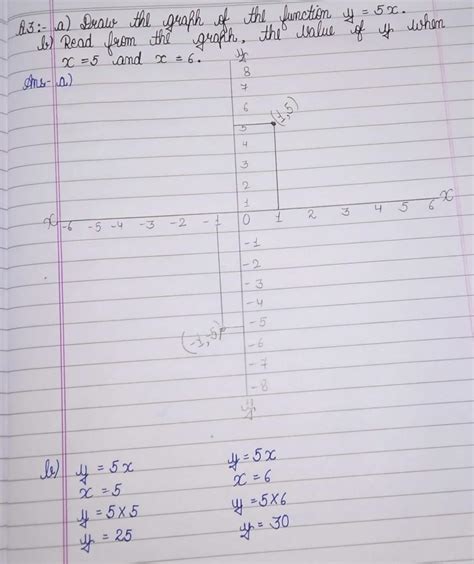 Q3:- a) Draw the graph of the function y = 5x.
b) Read from the graph, the value of y when
x = 5 and x = 6.
Ans- a)
y
8
7
6
5 (1,5)
4
3
2
1
x -6 -5 -4 -3 -2 -1 0 1 2 3 4 5 6 x
-1
-2
-3
-4
(-1,-5) -5
-6
-7
-8
y
b) y = 5x y = 5x
x = 5 x = 6
y = 5×5 y = 5×6
y = 25 y = 30